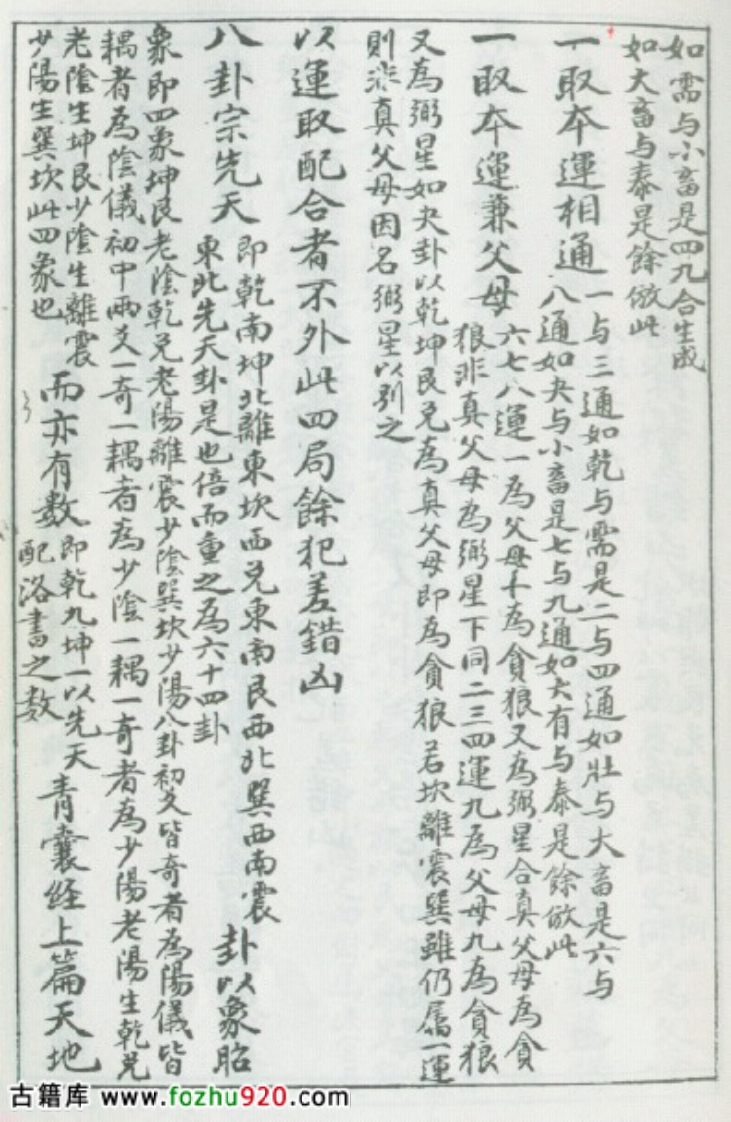 如需与小畜是四九合生成
如大畜与泰是餘倣此
一取本運相通
一与三通如乾与需是二与四通如壯与大畜是六与
八通如夬与小畜是七与九通如大有与泰是餘倣此
一取本運兼父母
六七八運一為父母一為貪狼又為弼星合真父母為貪
狼非真父母為弼星下同二三四運九為父母九為貪狼
又為弼星如夬卦以乾坤艮兑為真父母即為貪狼若坎離震巽雖仍屬一運
則非真父母因名弼星以别之
以運取配合者不外此四局餘犯差錯凶
八卦宗先天
即乾南坤北離東坎西兑東南艮西北巽西南震
東北先天卦是也倍而重之為六十四卦
卦以象昭
象即四象坤艮老陰乾兑老陽離震少陰巽坎少陽八卦初爻皆奇者為陽儀皆
耦者為陰儀初中兩爻一奇一耦者為少陰一耦一奇者為少陽老陽生乾兑
老陰生坤艮少陰生離震
少陽生巽坎此四象也
而亦有数
即乾九坤一以先天
配洛書之数
青囊経上篇天地
古籍库 www.fozhu920.com